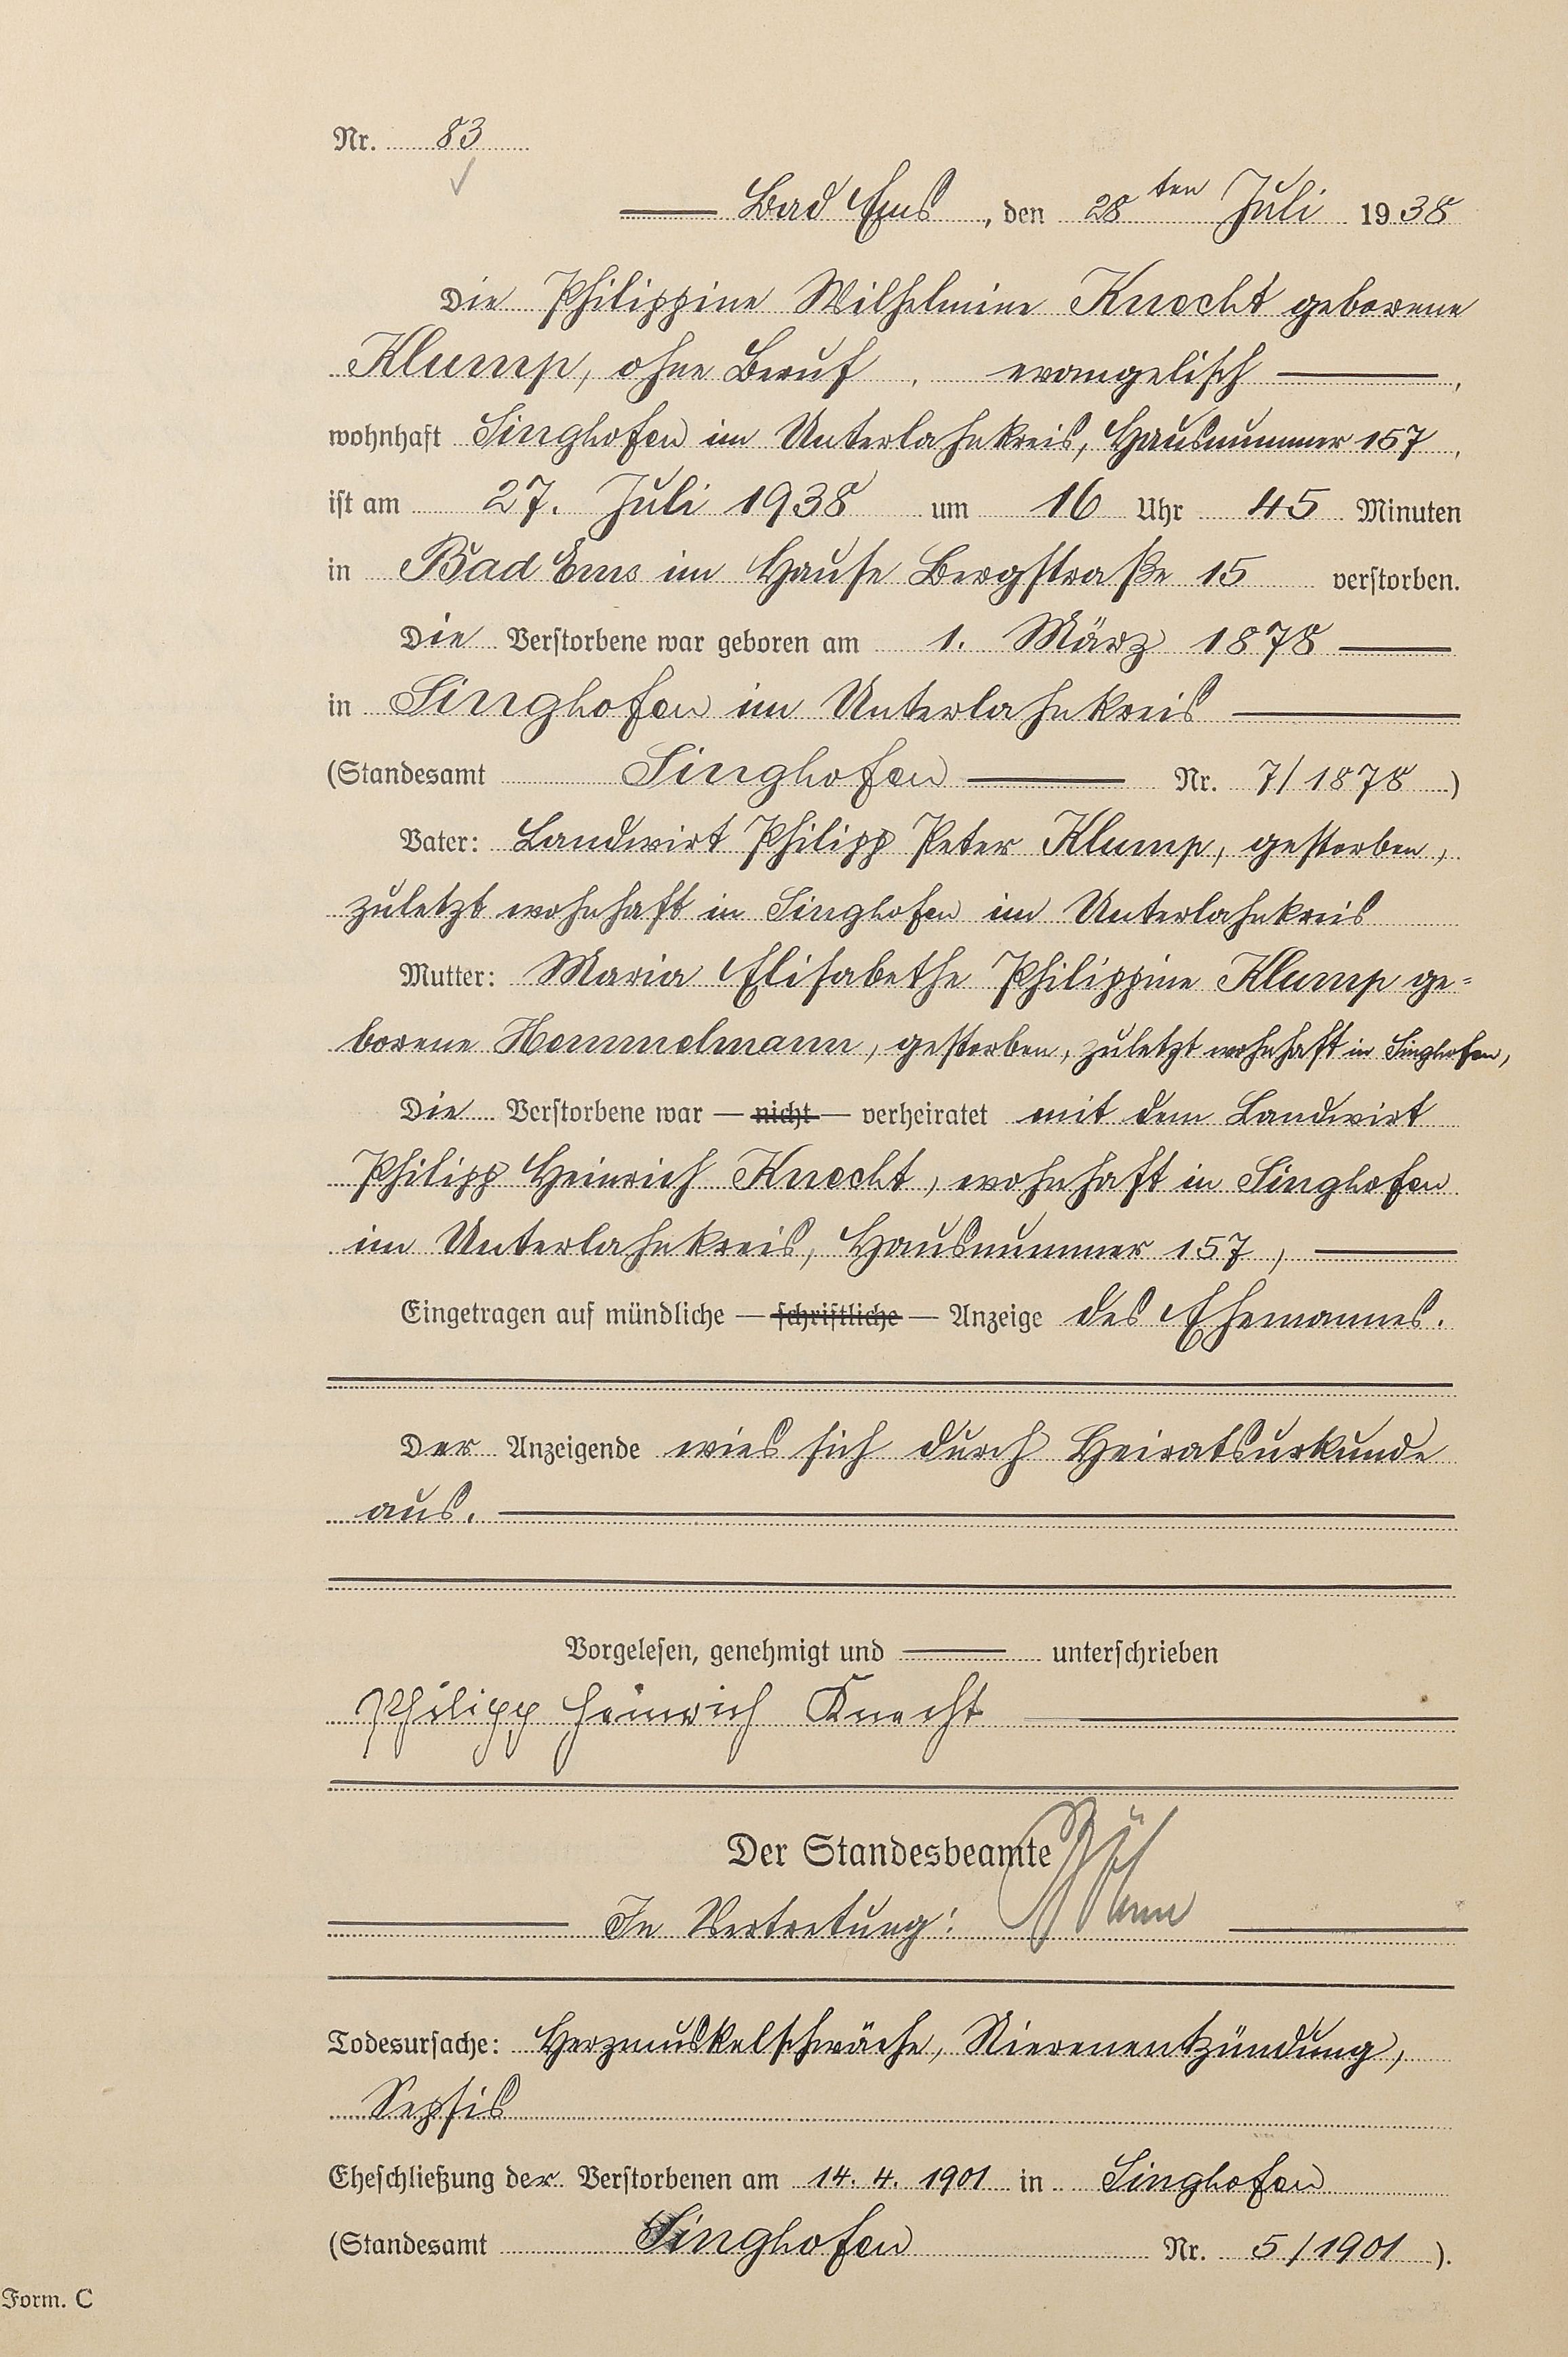 Nr. 83
Bad Ems, den 28ten Juli 1938
Die Philippine Wilhelmine Knecht geborene
Klump, ohne Beruf, evangelisch,
wohnhaft Singhofen im Unterlahnkreis, Hausnummer 157,
ist am 27. Juli 1938 um 16 Uhr 45 Minuten
in Bad Ems im Hause Bergstraße 15 verstorben.
Die Verstorbene war geboren am 1. März 1878
in Singhofen im Unterlahnkreis
(Standesamt Singhofen Nr. 7/1878)
Vater: Landwirt Philipp Peter Klump, gestorben,
zuletzt wohnhaft in Singhofen im Unterlahnkreis
Mutter: Maria Elisabethe Philippine Klump ge=
borene Hemmelmann, gestorben, zuletzt wohnhaft in Singhofen,
Die Verstorbene war — nicht — verheiratet mit dem Landwirt
Philipp Heinrich Knecht, wohnhaft in Singhofen
im Unterlahnkreis, Hausnummer 157,
Eingetragen auf mündliche — schriftliche — Anzeige des Ehemannes.
Der Anzeigende wies sich durch Heiratsurkunde
aus.
Vorgelesen, genehmigt und unterschrieben
Philipp Heinrich Knecht
Der Standesbeamte
In Vertretung:
Todesursache: Herzmuskelschwäche, Nierenentzündung,
Sepsis
Eheschließung der Verstorbenen am 14. 4. 1901 in Singhofen
(Standesamt Singhofen Nr. 5/1901).
Form. C